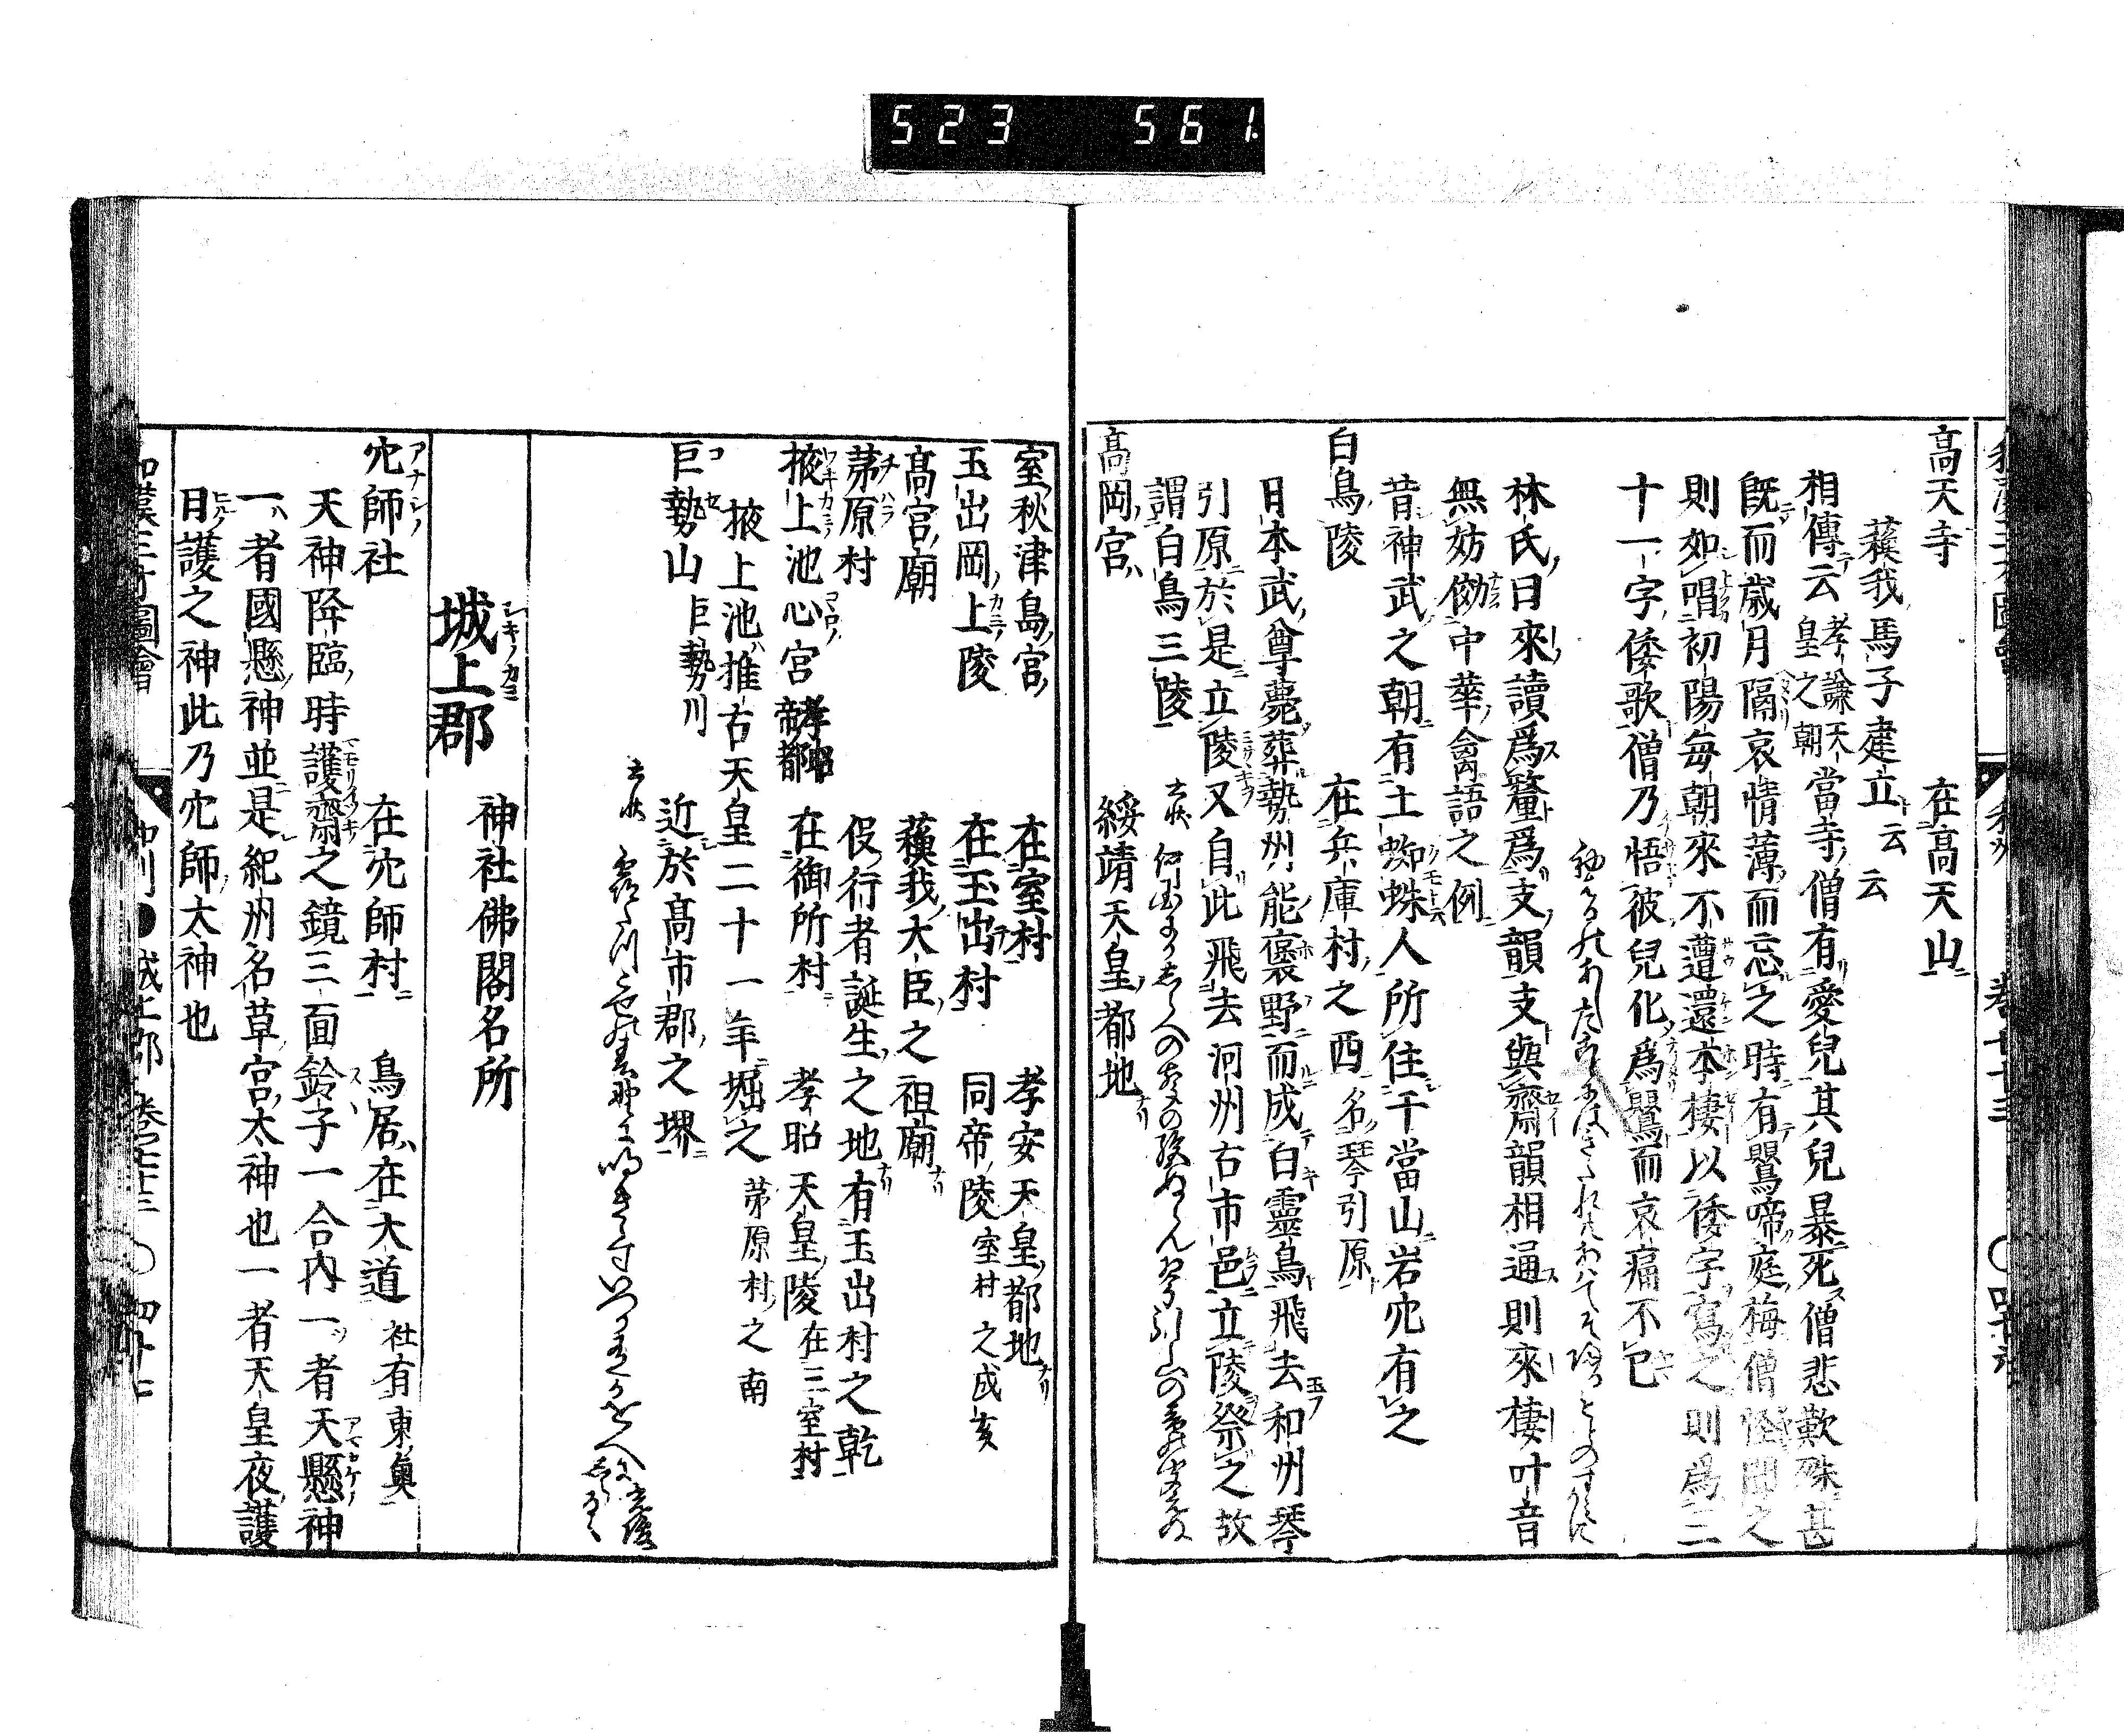 523 561
高天寺 在高天山
蘓我馬子建立云云
相傳云孝謙天皇之朝當寺僧有愛兒其兒暴死僧悲歎殊甚
旣而歲月隔哀情薄而忘之時有鸎啼庭梅僧怪聞之
則如唱初陽毎朝來不遭還本棲以倭字寫之則爲三
十一字倭歌僧乃悟彼兒化爲鸎而哀痛不已
林氏曰來讀爲釐爲支韻支與齋韻相通則來棲叶音
無妨傚中華禽語之例
昔神武之朝有土蜘蛛人所住干當山岩穴有之
白鳥陵 在兵庫村之西名琴引原
日本武尊薨葬勢州能褒野而成白靈鳥飛去和州琴
引原於是立陵又自此飛去河州古市邑立陵祭之故
謂白鳥三陵
高岡宮 綏靖天皇都地
室秋津島宮 在室村 孝安天皇都地
玉出岡上陵 在玉出村 同帝陵室村之戌亥
高宮廟 蘓我大臣之祖廟
茅原村 役行者誕生之地有玉出村之乾
掖上池心宮孝昭帝都 在御所村 孝昭天皇陵在三室村
掖上池推古天皇二十一年堀之 茅原村之南
巨勢山 巨勢川 近於高市郡之堺
城上郡 神社佛閣名所
穴師社 在穴師村 鳥居在大道 社有東奥
天神降臨時護齋之鏡三面鈴子一合内一者天懸神
一者國懸神並是紀州名草宮太神也一者天皇夜護
日護之神此乃穴師太神也